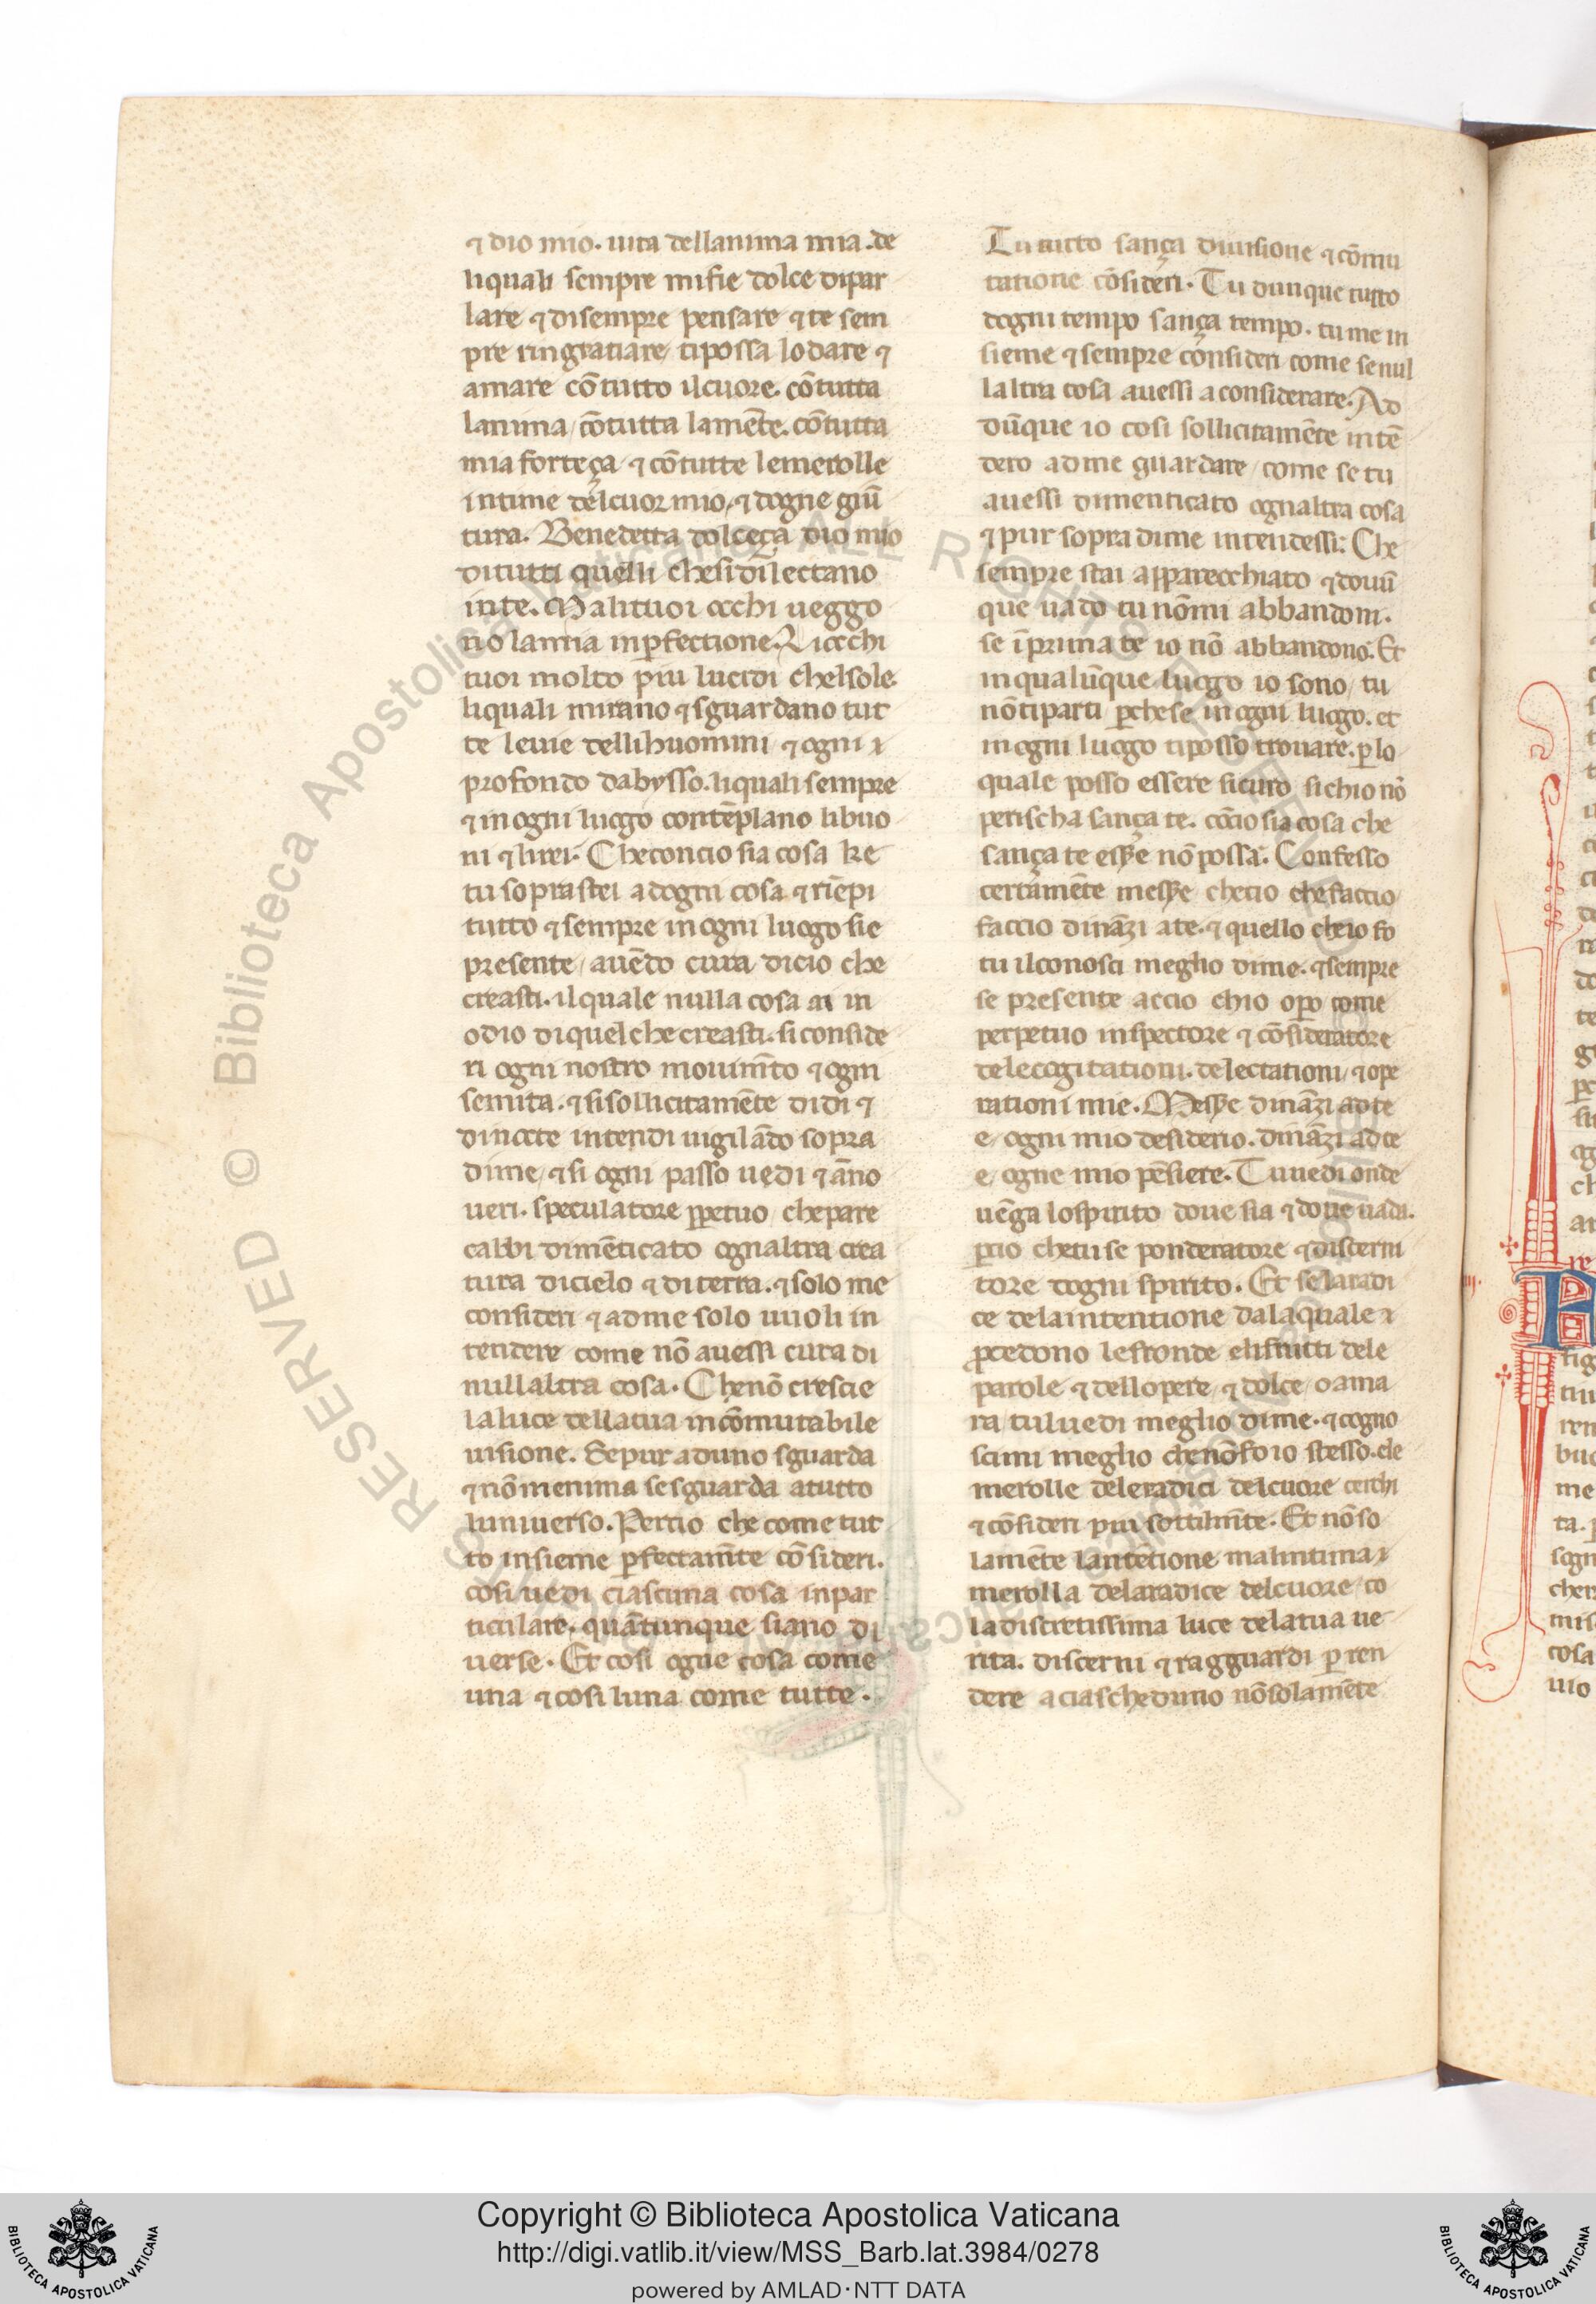 ⁊ dio mio. uita dellanima mia. de
liquali sempre mifie dolce dipar
lare ⁊ disempre pensare ⁊ te sem
pre ringratiare / tipossa lodare ⁊
amare cō tutto ilcuore. cōtutta
lanima / cōtutta lamēte. cōtutta
mia forteça / ⁊ cōtutte lemerolle
intime delcuor mio / ⁊ dogne giū
tura. Benedetta dolceça dio mio
ditutti quelli chesidilectano
inte. Malituoi occhi ueggo
no lamia inꝑfectione. Liocchi
tuoi molto piu lucidi chelsole
liquali mirano ⁊ sguardano tut
te leuie dellihuomini / ⁊ ogni
profondo dabysso. liquali sempre
⁊ inogni luogo contēplano libuo
ni ⁊ lirei. Checoncio sia cosa ke
tu soprastei adogni cosa ⁊ riēpi
tutto ⁊ sempre inogni luogo sie
presente / auēdo cura dicio che
creasti. ilquale nulla cosa ai in
odio diquel che creasti. si conside
ri ogni nostro mouimēto ⁊ ogni
semita. ⁊ sisollicitamēte didi ⁊
dinocte intendi uigilādo sopra
dime / ⁊ si ogni passo uedi ⁊ āno
ueri. speculatore ꝑpetuo / chepare
cabbi dimēticato ognaltra crea
tura dicielo ⁊ diterra. ⁊ solo me
consideri ⁊ adme solo uuoli in
tendere come nō auessi cura di
nullaltra cosa. Chenō crescie
laluce dellatua incōmutabile
uisione. Sepur aduno sguarda
⁊ nō menima sesguarda atutto
luniuerso. Percio che come tut
to insieme ꝑfectamēte cōsideri.
cosi uedi ciascuna cosa inpar
ticulare. quātunque siano di
uerse. Et cosi ogne cosa come
una ⁊ cosi luna come tutte.
Tu tutto sança diuisione ⁊ cōmu
tatione cōsideri. Tu dunque tutto
dogni tempo sança tempo. tu me in
sieme ⁊ sempre consideri come se nul
laltra cosa auessi aconsiderare. Ad
dūque io cosi sollicitamēte intē
dero adme guardare / come se tu
auessi dimenticato ognaltra cosa
⁊ pur sopra dime intendessi. Che
sempre stai apparecchiato ⁊ douū
que uado tu nōmi abbandoni.
se īprima te io nō abbandono. Et
inqualūque luogo io sono / tu
nōtiparti ꝑchese inogni luogo. et
inogni luogo tiposso trouare. ꝑlo
quale posso essere sicuro sichio nō
perischa sança te. cōcio sia cosa che
sança te esse nō possa. Confesso
certamēte messe checio che faccio
faccio dināzi ate. ⁊ quello cheio fo
tu ilconosci meglio dime. ⁊ sempre
se presente accio chio oꝑo come
perpetuo inspectore ⁊ cōsideratore
delecogitationi. delectationi / ⁊ ope
rationi mie. Messe dināzi adte
e / ogni mio desiderio. dināzi adte
e / ogne mio pēsiere. Tu uedi onde
uēga lospirito doue sia ⁊ doue uada.
ꝑcio chetuse ponderatore ⁊ discerni
tore dogni spirito. Et selaradi
ce delaintentione dalaquale
ꝓcedono lefronde elifrutti dele
parole ⁊ dellopere / ⁊ dolce / o ama
ra tuluedi meglio dime. ⁊ cogno
scimi meglio chenōfo io stesso. ele
merolle deleradici delcuore cerchi
⁊ cōsideri piu sottilmēte. Et nōso
lamēte lantētione malintima
merolla delaradice delcuore / co
ladiscretissima luce delatua ue
rita. discerni ⁊ ragguardi ꝑ ren
dere aciascheduno nōsolamēte
© Biblioteca Apostolica Vaticana ALL RIGHTS RESERVED
Copyright © Biblioteca Apostolica Vaticana
http://digi.vatlib.it/view/MSS_Barb.lat.3984/0278
powered by AMLAD·NTT DATA
BIBLIOTECA APOSTOLICA VATICANA
BIBLIOTECA APOSTOLICA VATICANA